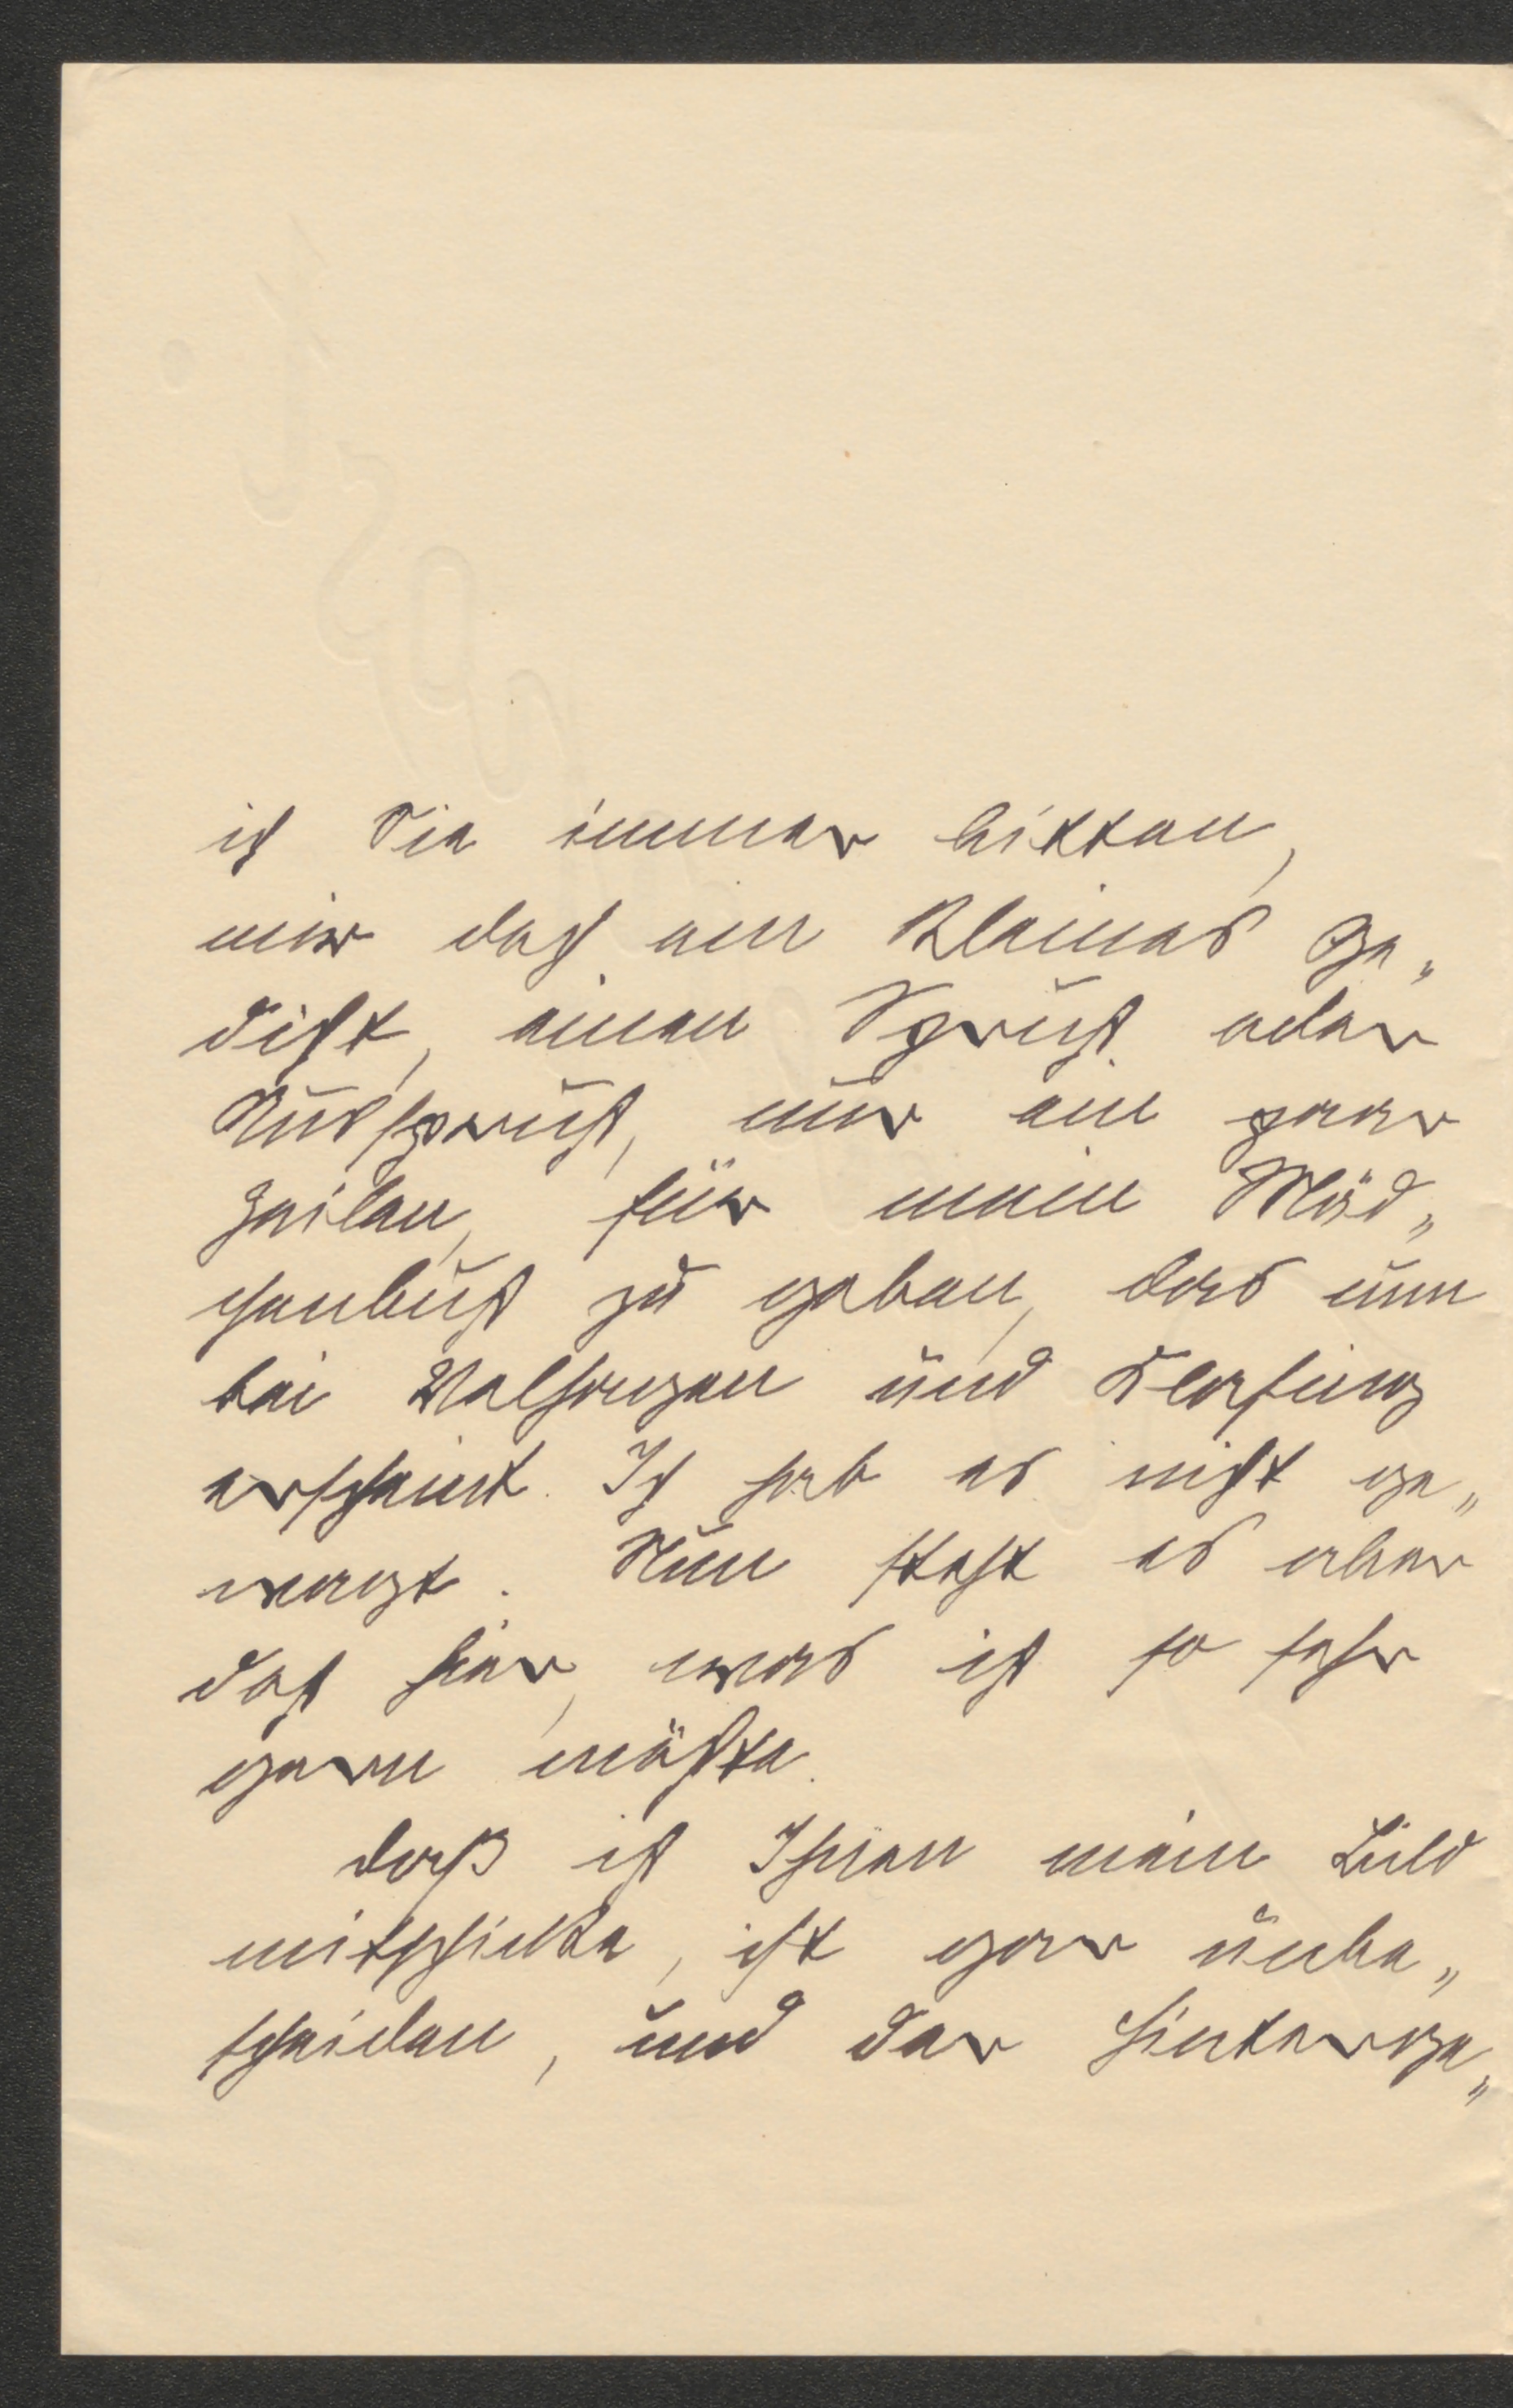 ich Sie immer bitten,
mir doch ein kleines Ge„
dicht, einen Spruch oder
Ausspruch, nur ein paar
Zeilen, für mein Mäd„
chenbuch zu geben, das nun
bei Velhagen und Klasing
erscheint. Ich hab es nicht ge„
wagt. Nun steht es aber
doch hier, was ich so sehr
gern möchte.
Daß ich Ihnen mein Bild
mitschicke, ist gar unbe„
scheiden, und der Hinterge„